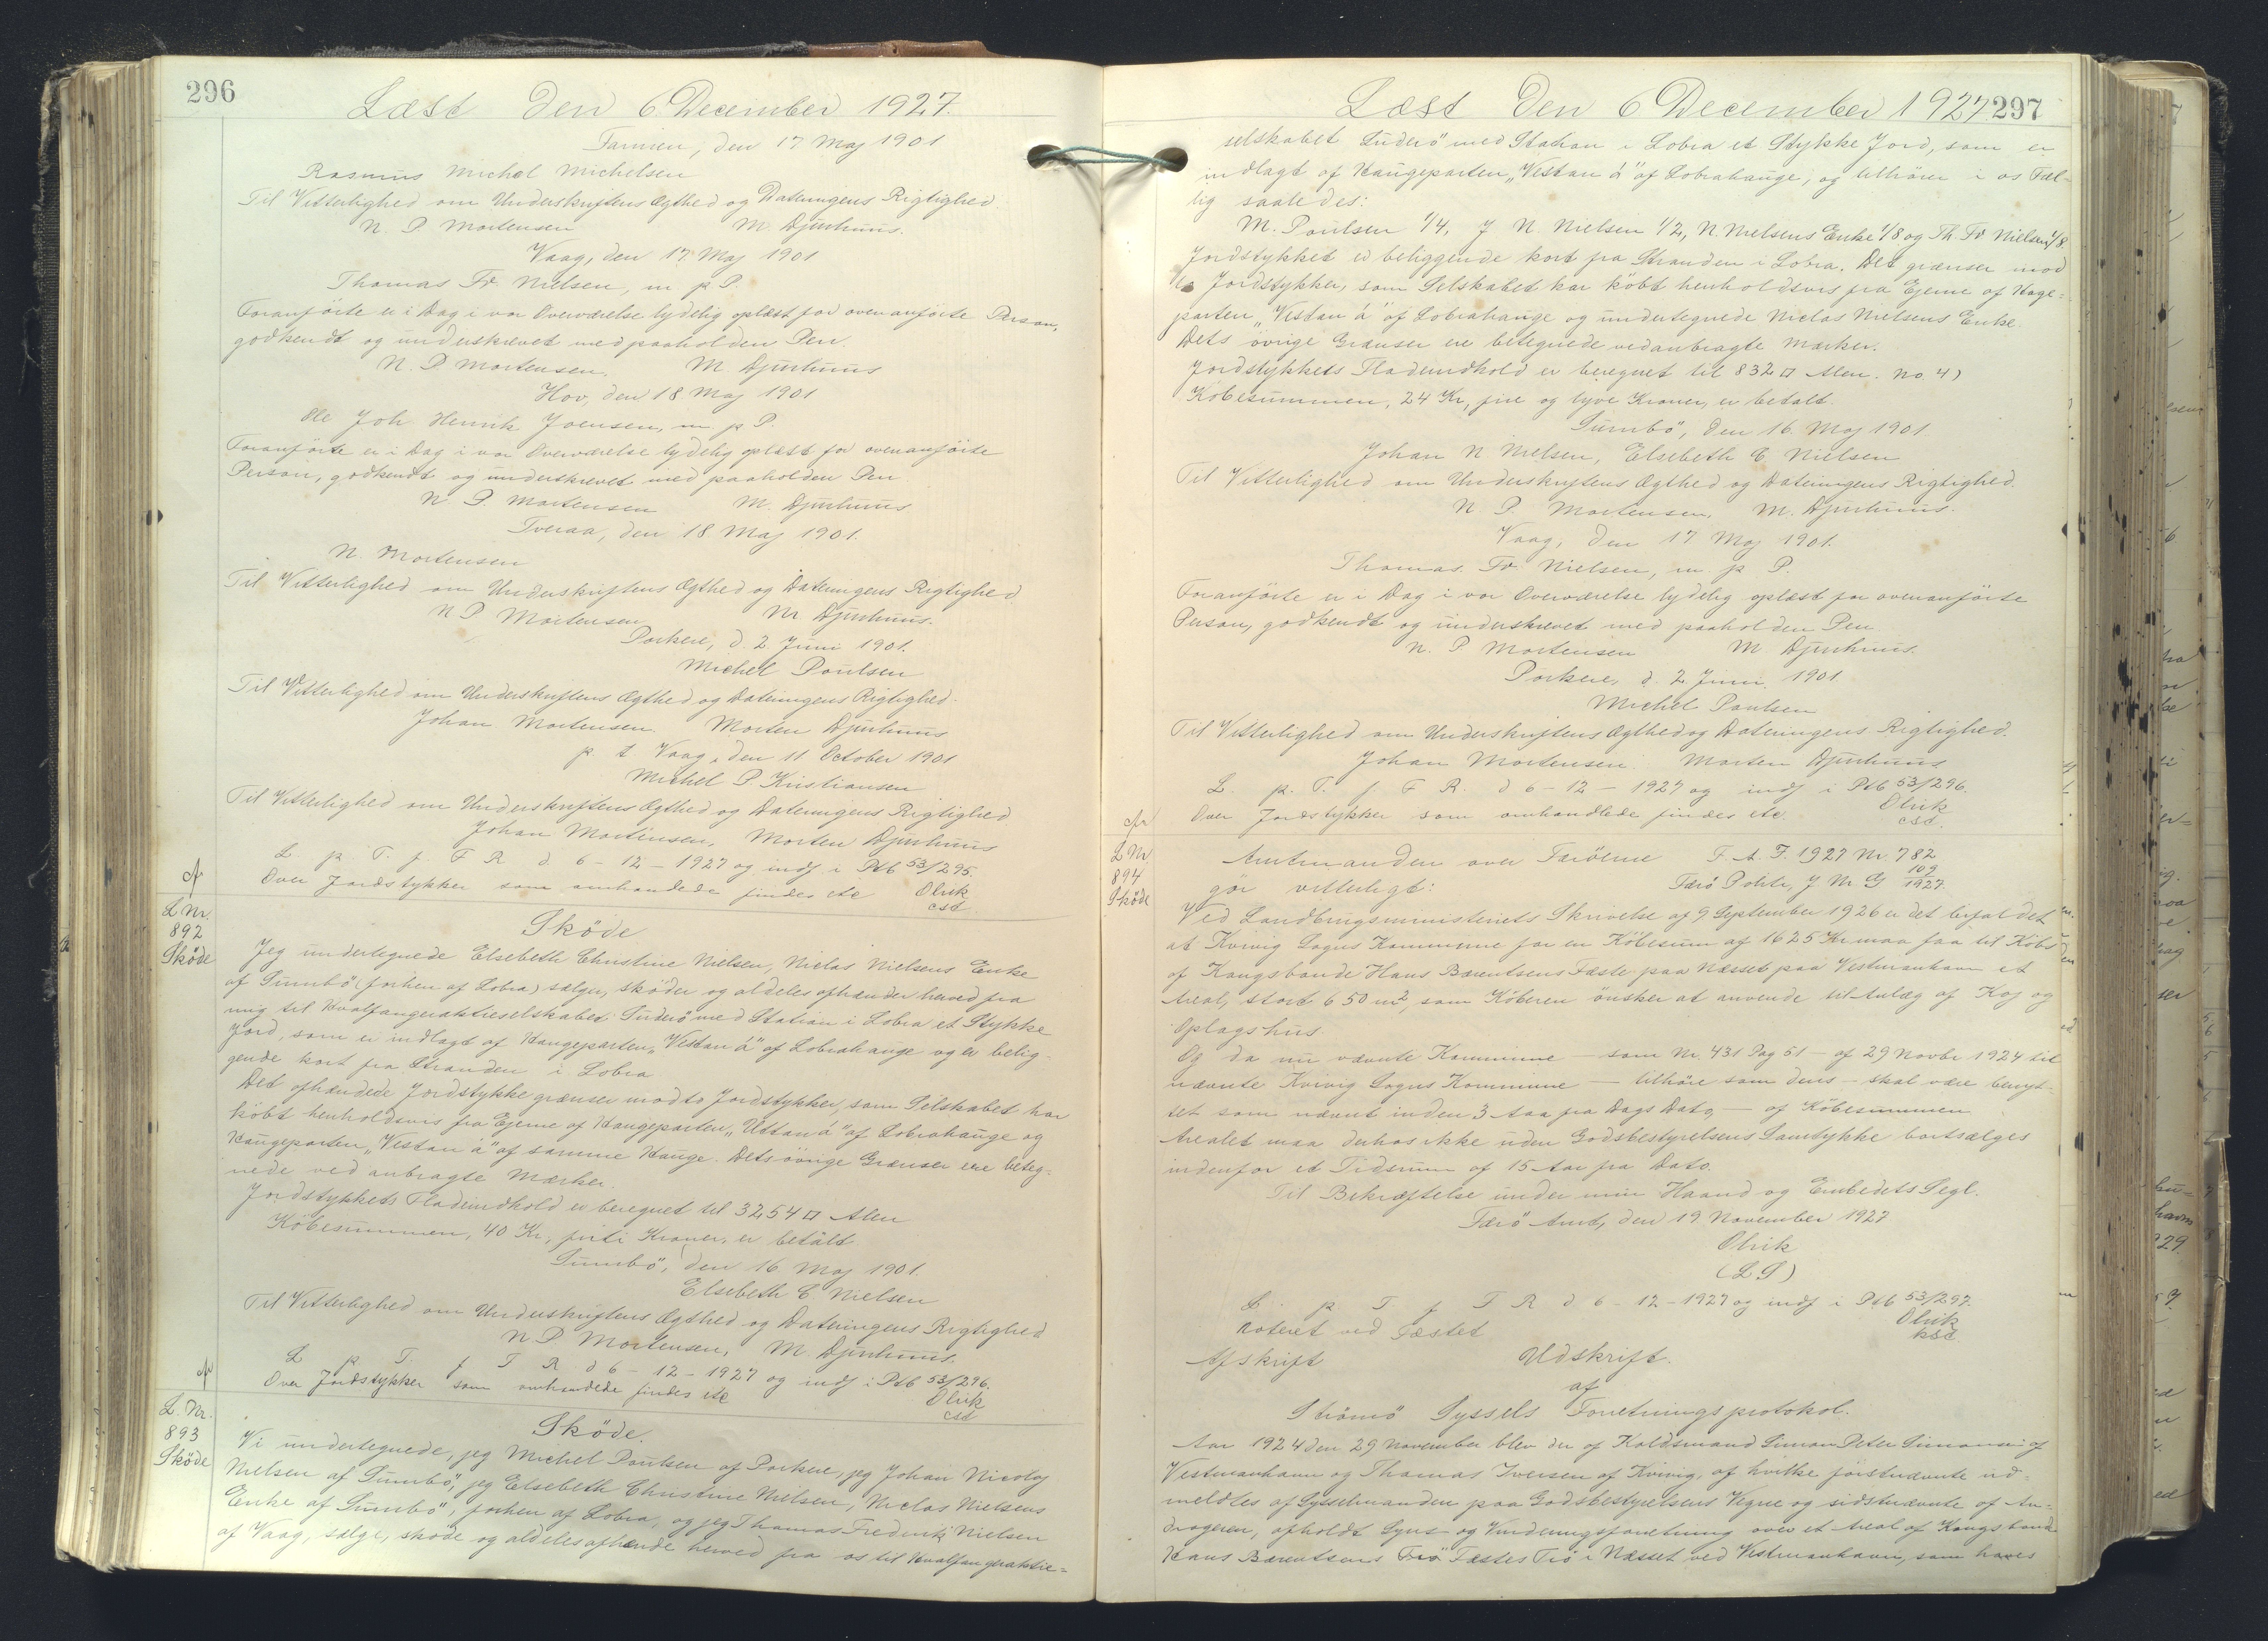 296
Læst den 6. December 1927.
Famien, den 17 Maj 1901
Rasmus Michal Michelsen
Til Vitterlighed om Underskriftens Ægthed og Dateringens Rigtighed.
N. P. Mortensen M. Djurhuus.
Vaag, den 17 Maj 1901
Thomas Fr. Nielsen, m p P.
Foranförte er i Dag i vor Overværelse lydelig oplæst for ovenanförte Person,
godkendt og underskrevet med paaholden Pen.
N. P. Mortensen. M. Djurhuus
Hov, den 18 Maj 1901
Ole Joh Henrik Joensen, m p P.
Foranförte er i Dag i vor Overværelse lydelig oplæst for ovenanförte
Person, godkendt og underskrevet med paaholden Pen
N. P. Mortensen M. Djurhuus
Tveraa, den 18 Maj 1901.
N. Mortensen
Til Vitterlighed om Underskriftens Ægthed og Dateringens Rigtighed
N P Mortensen M Djurhuus.
Porkere, d. 2 Juni 1901.
Michel Poulsen
Til Vitterlighed om Underskriftens Ægthed og Dateringens Rigtighed.
Johan Mortensen Morten Djurhuus
p. t Vaag, den 11 October 1901
Michel P. Kristiansen
Til Vitterlighed om Underskriftens Ægthed og Dateringens Rigtighed
Johan Mortensen, Morten Djurhuus
L. p. T. f F R d. 6 - 12 - 1927 og indf i Ptb 53/295.
Over Jordstykker som omhandlede findes etc Olrik
cst
L Nr.
892
Sköde
Sköde
Jeg undertegnede Elsebeth Christine Nielsen, Niclas Nielsens Enke
af Sumbö (forhen af Lobra) sælger, sköder og aldeles afhænder herved fra
mig til Hvalfangeraktieselskabet Suderö med Station i Lobra et Stykke
Jord, som er indlagt af Haugeparten "Vestan á" af Lobrahauge og er belig-
gende kort fra Stranden i Lobra
Det afhændede Jordstykke grænser mod to Jordstykker, som Selskabet har
köbt henholdsvis fra Ejerne af Haugeparten "Uttan á" af Lobrahauge og
Haugeparten "Vestan á" af samme Hauge. Dets övrige Grænser ere beteg-
nede ved anbragte Mærker.
Jordstykkets Fladeindhold er beregnet til 3254 □ Alen
Köbesummen, 40 Kr, firti Kroner, er betalt
Sumbö, den 16 Maj 1901.
Elsebeth C. Nielsen
Til Vitterlighed om Underskriftens Ægthed og Dateringens Rigtighed
N. P Mortensen, M. Djurhuus.
L p. T. f F R d 6 - 12 - 1927 og indf i Ptb 53/296.
Over Jordstykker som omhandlede findes etc Olrik
cst
L. Nr.
893
Sköde
Sköde.
Vi undertegnede, jeg Michel Poulsen af Porkere, jeg Johan Nicolaj
Nielsen af Sumbö, jeg Elsebeth Christine Nielsen, Niclas Nielsens
Enke af Sumbö, forhen af Lobra, og jeg Thomas Frederik Nielsen
af Vaag, sælge, sköde og aldeles afhænde herved fra os til Hvalfangeraktie-
Læst den 6 December 1927
297
selskabet Suderö med Station i Lobra et Stykke Jord, som er
indlagt af Haugeparten "Vestan á" af Lobrahauge, og tilhörer i os Fæl-
lig saaledes:
M. Poulsen 1/4, J N. Nielsen 1/2, N. Nielsens Enke 1/8 og Th. Fr Nielsen 1/8.
Jordstykket er beliggende kort fra Stranden i Lobra. Det grænser mod
to Jordstykker, som Selskabet har köbt henholdsvis fra Ejerne af Hage-
parten "Vestan á" af Lobrahauge og undertegnede Niclas Nielsens Enke.
Dets övrige Grænser ere betegnede ved anbragte Mærker.
Jordstykkets Fladeindhold er beregnet til 832 □ Alen. No 4)
Köbesummen, 24 Kr, fire og tyve Kroner, er betalt.
Sumbö, den 16 Maj 1901
Johan N Nielsen, Elsebeth C Nielsen
Til Vitterlighed om Underskriftens Ægthed og Dateringens Rigtighed.
N. P. Mortensen, M. Djurhuus.
Vaag, den 17 Maj 1901.
Thomas Fr. Nielsen, m p. P.
Foranförte er i Dag i vor Overværelse lydelig oplæst for ovenanförte
Person, godkendt og underskrevet med paaholden Pen
N. P Mortensen M Djurhuus.
Porkere, d. 2 Juni 1901
Michel Poulsen
Til Vitterlighed om Underskriftens Ægthed og Dateringens Rigtighed.
Johan Mortensen Morten Djurhuus
L. p. T. f. F R. d 6 - 12 - 1927 og indf i Ptb 53/296.
Over Jordstykker som omhandlede findes etc. Olrik
cst.
L Nr
894
Sköde
Amtmanden over Færöerne F. A. J. 1927 Nr. 782
gör vitterligt: Færö Politi, J Nr G 109/1927.
Ved Landbrugsministeriets Skrivelse af 9 September 1926 er det bifaldet
at Kvivig Sogns Kommune for en Köbesum af 1625 Kr maa faa til Köbs
af Kongsbonde Hans Barentsens Fæste paa Nesset paa Vestmanhavn et
Areal, stort 650 m², som Köberen önsker at anvende til Anlæg af Kaj og
Oplagshus.
Og da nu nævnte Kommune — som Nr. 431 Pag 51 — af 29 Novbr 1924 til
nævnte Kvivig Sogns Kommune — tilhöre som dens — skal være benyt-
tet som nævnt inden 3 Aar fra Dags Dato, — af Köbesummen
Arealet maa derhos ikke uden Godsbestyrelsens Samtykke bortsælges
indenfor et Tidsrum af 15 Aar fra Dato.
Til Bekræftelse under min Haand og Embedets Segl.
Færö Amt, den 19 November 1927
Olrik
(L S)
L. p T f F R d 6 - 12 - 1927 og indf i Ptb 53/297.
Noteret ved Fæstet Olrik
Afskrift Udskrift.
af
Strömö Syssels Forretningsprotokol.
Aar 1924 den 29 November blev der af Holdsmand Simon Peter Simonsen af
Vestmanhavn og Thomas Iversen af Kvivig, af hvilke förstnævnte ud-
meldtes af Sysselmanden paa Godsbestyrelsens Vegne og sidstnævnte af An-
drageren, afholdt Syns- og Vurderingsforretning over et Areal af Kongsbonde
Hans Barentsens Fæstes Trö i Nesset ved Vestmanhavn, som haves